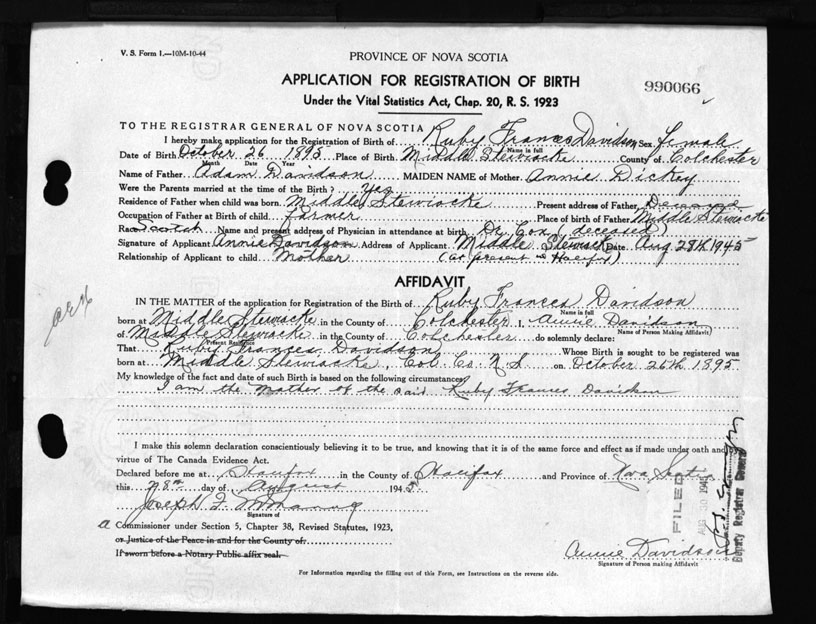 V. S. Form 1.—10M-10-44
PROVINCE OF NOVA SCOTIA
APPLICATION FOR REGISTRATION OF BIRTH
990066
Under the Vital Statistics Act, Chap. 20, R. S. 1923
TO THE REGISTRAR GENERAL OF NOVA SCOTIA
I hereby make application for the Registration of Birth of Ruby Frances Davidson Sex female
Name in full
Date of Birth October 26 1895 Place of Birth Middle Stewiacke County of Colchester
Month Date Year
Name of Father Adam Davidson MAIDEN NAME of Mother Annie Dickey
Were the Parents married at the time of the Birth? Yes
Residence of Father when child was born Middle Stewiacke Present address of Father Deceased
Occupation of Father at Birth of child farmer Place of birth of Father Middle Stewiacke
Race Scotch Name and present address of Physician in attendance at birth Dr. Cox (deceased)
Signature of Applicant Annie Davidson Address of Applicant Middle Stewiacke Date Aug 28th 1945
Relationship of Applicant to child Mother (at present in Halifax)
AFFIDAVIT
IN THE MATTER of the application for Registration of the Birth of Ruby Frances Davidson
Name in full
born at Middle Stewiacke in the County of Colchester I, Annie Davidson
Name of Person Making Affidavit
of Middle Stewiacke in the County of Colchester do solemnly declare:
Present Residence
That Ruby Frances Davidson Whose Birth is sought to be registered was
born at Middle Stewiacke, Col. Co. N S on October 26th 1895
My knowledge of the fact and date of such Birth is based on the following circumstances
I am the mother of the said Ruby Frances Davidson
I make this solemn declaration conscientiously believing it to be true, and knowing that it is of the same force and effect as if made under oath and by
virtue of The Canada Evidence Act.
Declared before me at Halifax in the County of Halifax and Province of Nova Scotia
this 28th day of August 1945
Joseph F.
Signature of
a Commissioner under Section 5, Chapter 38, Revised Statutes, 1923,
or Justice of the Peace in and for the County of
If sworn before a Notary Public affix seal.
Annie Davidson
Signature of Person making Affidavit
For Information regarding the filling out of this Form, see Instructions on the reverse side.
FILED
AUG 30 1945
Deputy Registrar General